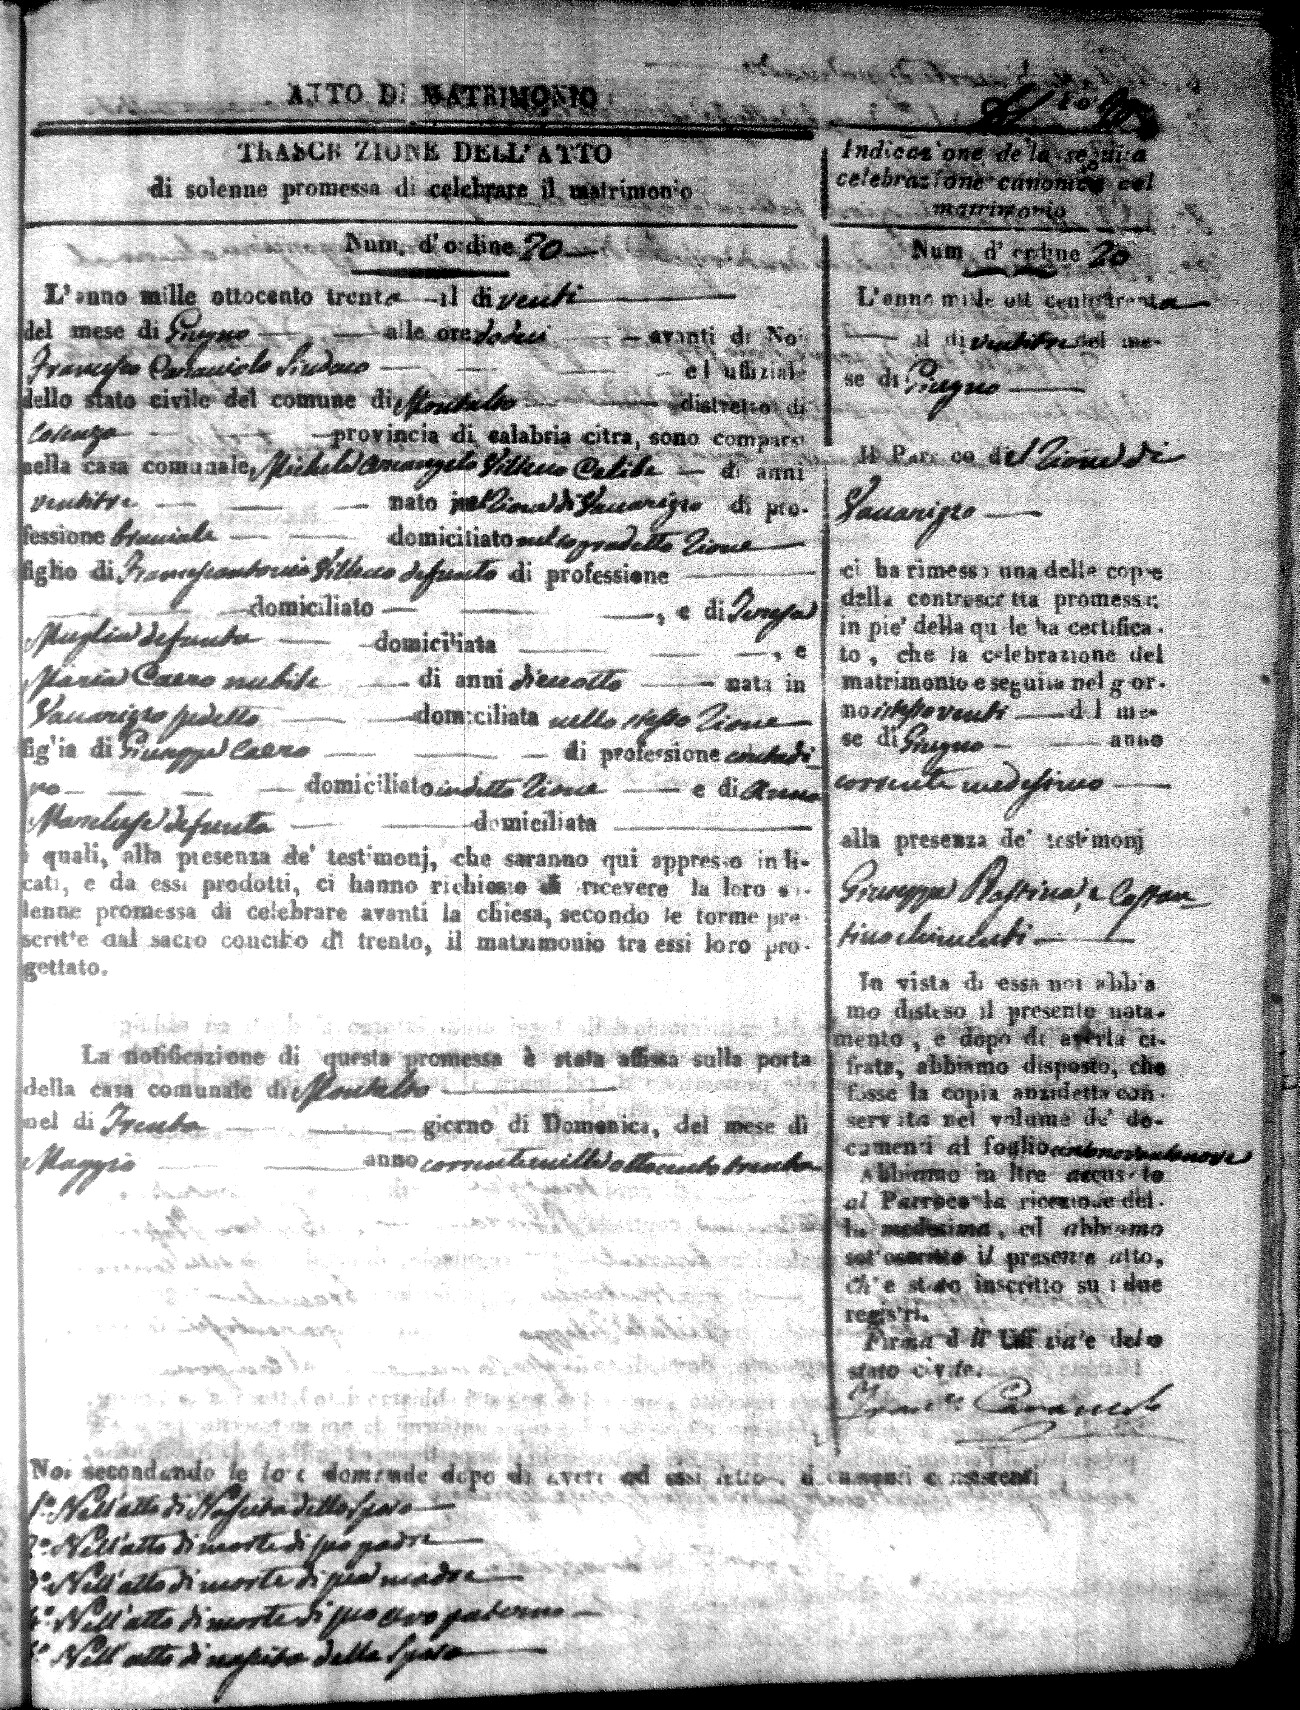 ATTO DI MATRIMONIO
TRASCRIZIONE DELL'ATTO
di solenne promessa di celebrare il matrimonio
Num. d'ordine 20
L'anno mille ottocento trenta il di venti
del mese di Giugno alle ore dodici avanti di Noi
Francesco Caracciolo Sindaco ed uffiziale
dello stato civile del comune di Montalto distretto di
Cosenza provincia di calabria citra, sono comparsi
nella casa comunale Michel'Arcangelo Celibe di anni
ventitre nato nel Rione di Vaccarizzo di pro-
fessione bracciale domiciliato nel sopradetto Rione
figlio di Francescantonio defunto di professione
domiciliato , e di Teresa
Muglia defunta domiciliata , e
Maria Caero nubile di anni dieciotto nata in
Vaccarizzo predetto domiciliata nello stesso Rione
figlia di Giuseppe Caero di professione contadi
no domiciliato in detto Rione e di Anna
Marchese defunta domiciliata
i quali, alla presenza de' testimonj, che saranno qui appresso indi-
cati, e da essi prodotti, ci hanno richiesto di ricevere la loro so-
lenne promessa di celebrare avanti la chiesa, secondo le forme pre-
scritte dal sacro concilio di trento, il matrimonio tra essi loro pro-
gettato.
La notificazione di questa promessa è stata affissa sulla porta
della casa comunale di Montalto
nel di Trenta giorno di Domenica, del mese di
Maggio anno corrente mille ottocento trenta
Indicazione della seguita
celebrazione canonica del
matrimonio
Num d'ordine 20
L'anno mille ottocento trenta
il di ventitre del me-
se di Giugno
Il Parroco del Rione di
Vaccarizzo
ci ha rimesso una delle copie
della controscritta promessa;
in pie' della quale ha certifica-
to, che la celebrazione del
matrimonio e seguita nel gior-
no istesso venti del me-
se di Giugno anno
corrente medesimo
alla presenza de' testimonj
Giuseppe e Costan
tino Chimenti
In vista di essa noi abbia
mo disteso il presente nota-
mento, e dopo di averla ci-
frata, abbiamo disposto, che
fosse la copia anzidetta con-
servata nel volume de' do-
cumenti al foglio centonovantanove
Abbiamo inoltre accusato
al Parroco la ricezione del-
la medesima, ed abbiamo
sottoscritto il presente atto,
ch'e stato inscritto su i due
registri.
Firma dell'Uffiziale dello
stato civile.
Franc.co Caracciolo
Noi secondando le loro domande dopo di avere ad essi letto i documenti consistenti
1.° Nell'atto di Nascita dello Sposo
2.° Nell'atto di morte di suo padre
3.° Nell'atto di morte di sua madre
4.° Nell'atto di morte di suo avo paterno
5.° Nell'atto di nascita della Sposa